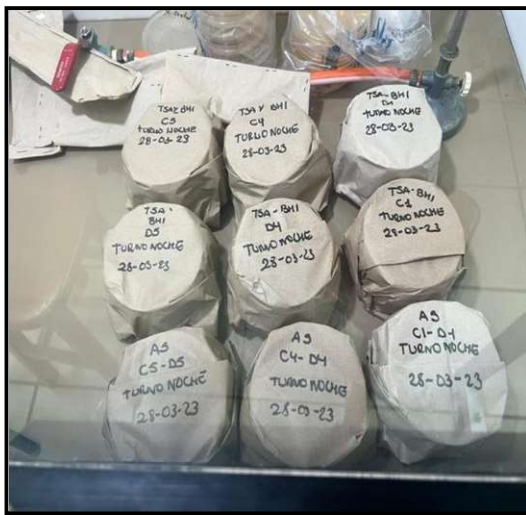 TSA Y BHI
C5
TURNO NOCHE
28-03-23
TSA Y BHI
C4
TURNO NOCHE
28-03-23
TSA-BHI
TURNO NOCHE
28-03-23
TSA-
BHI
D5
TURNO NOCHE
28-03-23
TSA-BHI
D4
TURNO NOCHE
28-03-23
TSA-BHI
C1
TURNO NOCHE
28-03-23
AS
C5-D5
TURNO NOCHE
28-03-23
AS
C4-D4
TURNO NOCHE
28-03-23
AS
C1-D1
TURNO NOCHE
28-03-23